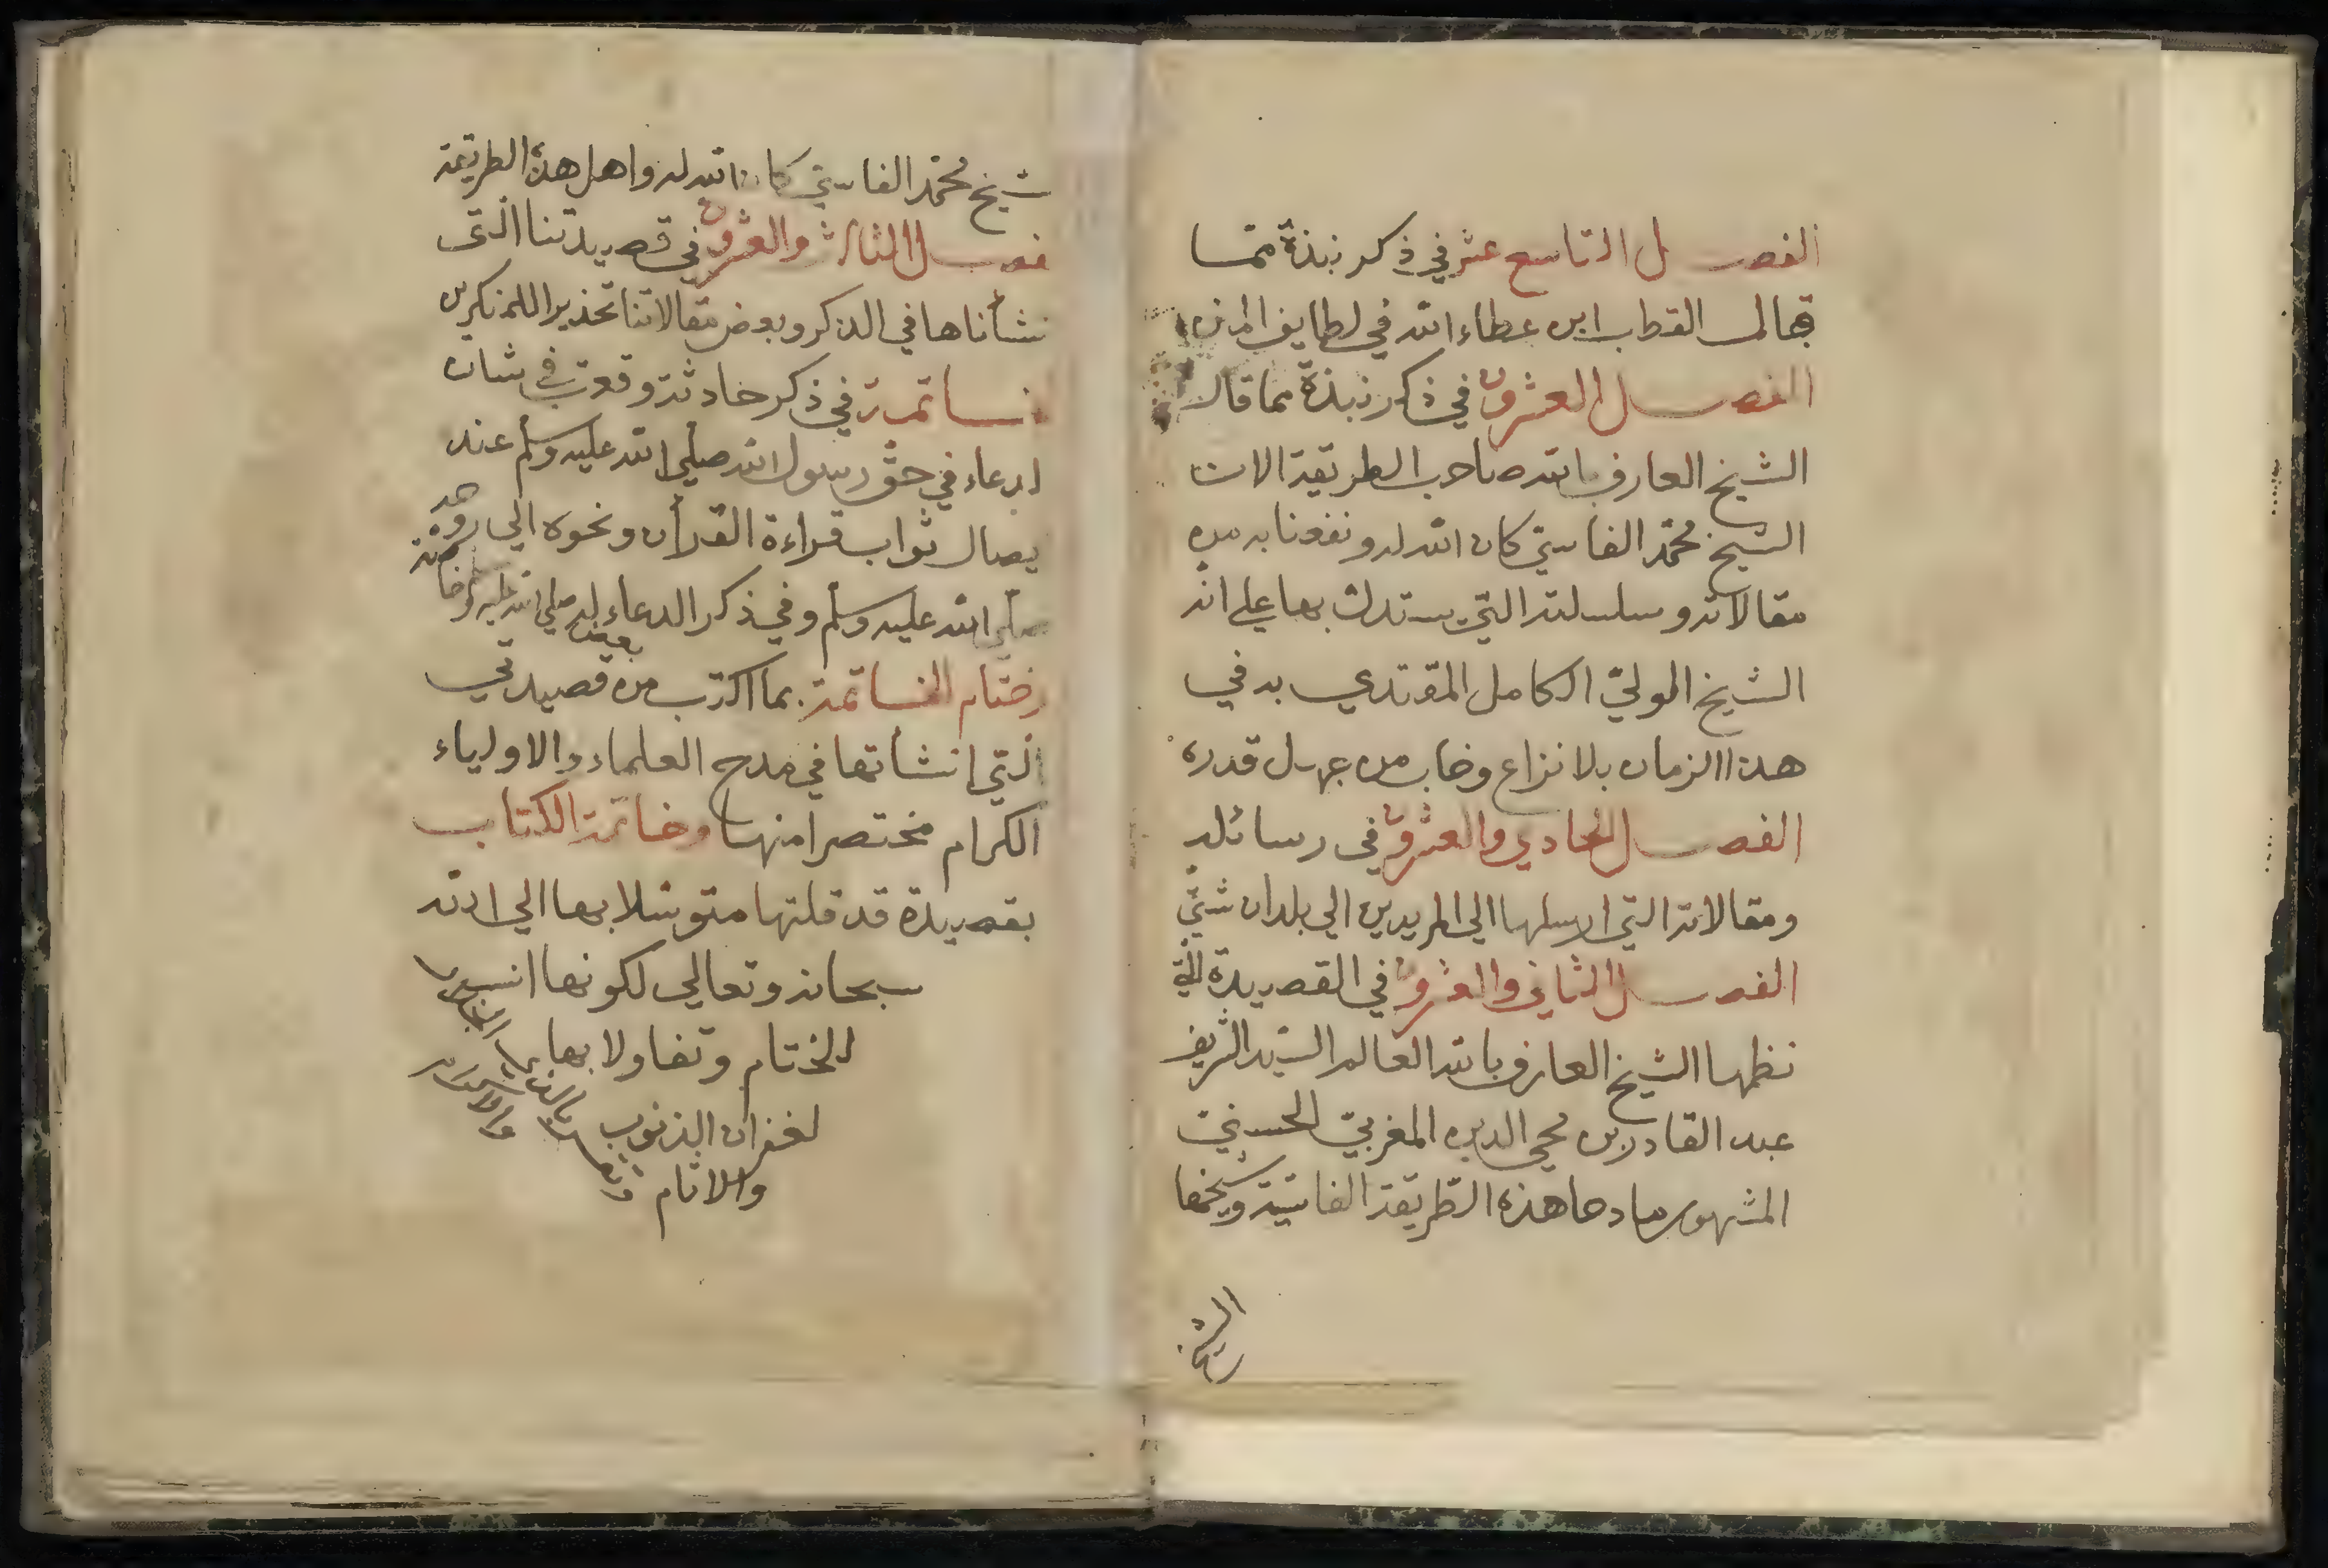 الفصل التاسع عشر في ذكر نبذة مما
قال القطب ابن عطاء الله في لطايف المنن
الفصل العشرون في ذكر نبذة مما قال
الشيخ العارف بالله صاحب الطريقة الان
الشيخ محمد الفاسي كان الله له ونفعنا به من
مقالاته وسلسلته التي يستدل بها علي انه
الشيخ الولي الكامل المقتدي به في
هذا الزمان بلا نزاع وخاب من جهل قدره
الفصل الحادي والعشرون في رسائله
ومقالاته التي ارسلها الي المريدين الي بلدان شتي
الفصل الثاني والعشرون في القصيدة التي
نظمها الشيخ العارف بالله العالم السيد الشريف
عبد القادر بن محي الدين المغربي الحسني
المشهور مادحا هذه الطريقة الفاسية وشيخها
الشيخ
شيخ محمد الفاسي كان الله له واهل هذه الطريقة
فصل الثالث والعشرون في قصيدتنا التي
نشأناها في الذكر وبعض مقالاتنا تحذيرا للمنكرين
خاتمة في ذكر حادثة وقعت في شان
لدعاء في حق رسول الله صلي الله عليه وسلم عند
يصال ثواب قراءة القرأن ونحوه الي روحه
صلي الله عليه وسلم وفي ذكر الدعاء له صلي الله عليه وسلم
وختام الخاتمة بما اكتب من بعض قصيدتي
التي انشأتها في مدح العلماء والاولياء
الكرام مختصرا منها وخاتمة الكتاب
بقصيدة قد قلتها متوسلا بها الي الله
سبحانه وتعالي لكونها انسب
للختام وتفاولا بها
لغفران الذنوب
والاثام